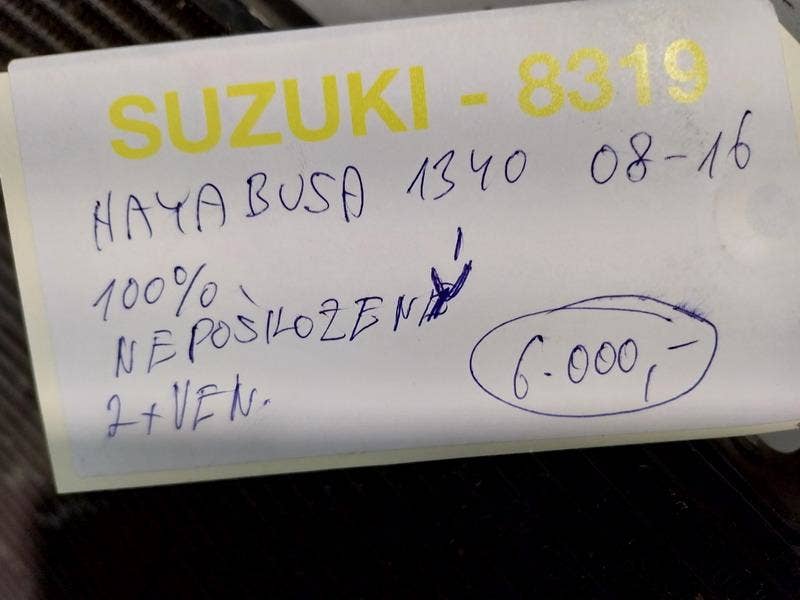 SUZUKI - 8319
HAYABUSA 1340 08-16
100%
NEPOŠKOZENÝ
2x VEN.
6.000,-